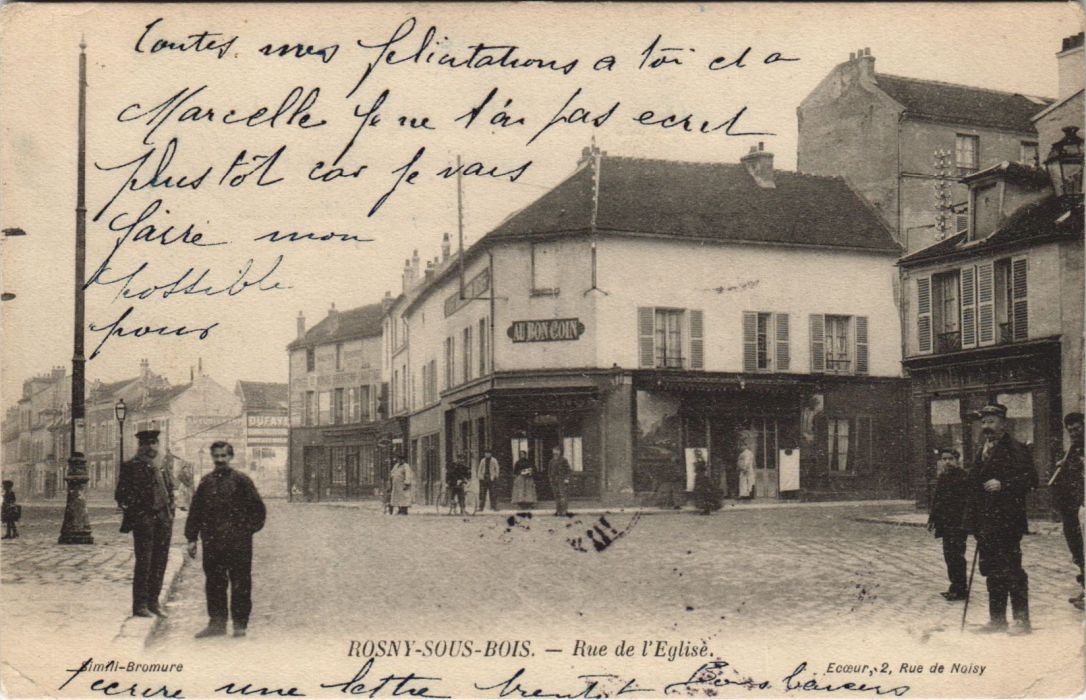 toutes mes felicitations a toi et a
Marcelle Je ne t'ai pas ecrit
plus tôt car Je vais
faire mon
possible
pour
AU BON COIN
DUFAYEL
ROSNY-SOUS-BOIS. — Rue de l'Eglise.
Simili-Bromure
Ecœur, 2, Rue de Noisy
t'ecrire une lettre bientot Bons baisers